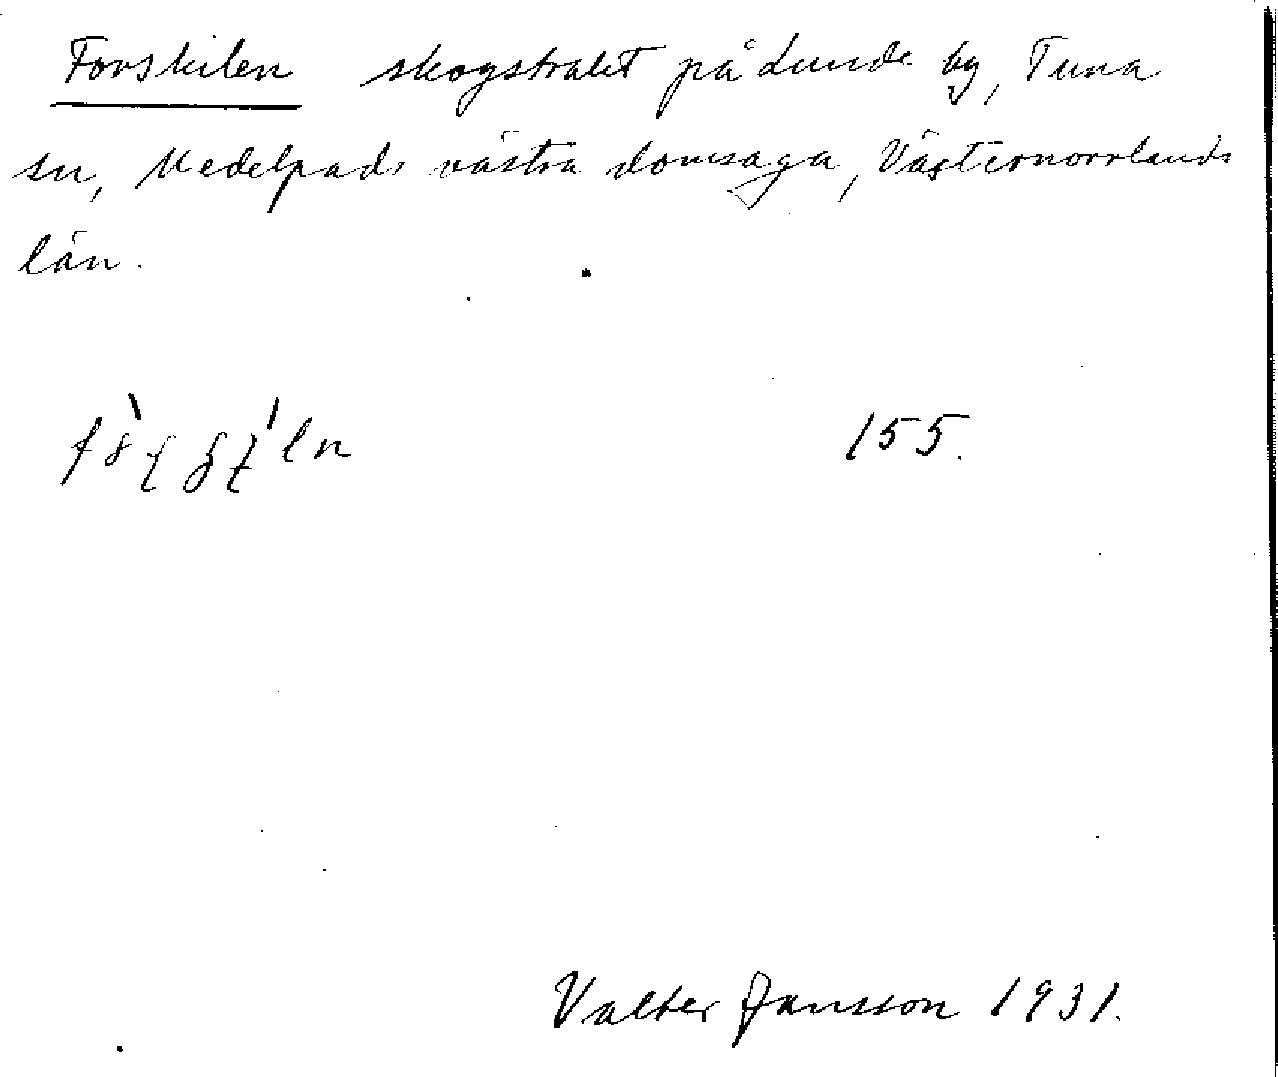 Forskilen skogstrakt på Lunde by, Tuna
sn, Medelpads västra domsaga, Västernorrlands
län.
155.
Valter Jansson 1931.